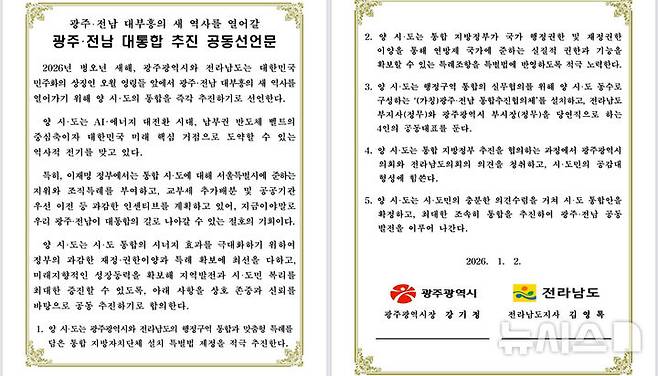 광주·전남 대부흥의 새 역사를 열어갈
광주·전남 대통합 추진 공동선언문
2026년 병오년 새해, 광주광역시와 전라남도는 대한민국
민주화의 상징인 오월 영령들 앞에서 광주·전남 대부흥의 새 역사를
열어가기 위해 양 시·도의 통합을 즉각 추진하기로 선언한다.
양 시·도는 AI·에너지 대전환 시대, 남부권 반도체 벨트의
중심축이자 대한민국 미래 핵심 거점으로 도약할 수 있는
역사적 전기를 맞고 있다.
특히, 이재명 정부에서는 통합 시·도에 대해 서울특별시에 준하는
지위와 조직특례를 부여하고, 교부세 추가배분 및 공공기관
우선 이전 등 과감한 인센티브를 계획하고 있어, 지금이야말로
우리 광주·전남이 대통합의 길로 나아갈 수 있는 절호의 기회이다.
양 시·도는 시·도 통합의 시너지 효과를 극대화하기 위하여
정부의 과감한 재정·권한이양과 특례 확보에 최선을 다하고,
미래지향적인 성장동력을 확보해 지역발전과 시·도민 복리를
최대한 증진할 수 있도록, 아래 사항을 상호 존중과 신뢰를
바탕으로 공동 추진하기로 합의한다.
1. 양 시·도는 광주광역시와 전라남도의 행정구역 통합과 맞춤형 특례를
담은 통합 지방자치단체 설치 특별법 제정을 적극 추진한다.
2. 양 시·도는 통합 지방정부가 국가 행정권한 및 재정권한
이양을 통해 연방제 국가에 준하는 실질적 권한과 기능을
확보할 수 있는 특례조항을 특별법에 반영하도록 적극 노력한다.
3. 양 시·도는 행정구역 통합의 실무협의를 위해 양 시·도 동수로
구성하는 '(가칭)광주·전남 통합추진협의체'를 설치하고, 전라남도
부지사(정무)와 광주광역시 부시장(정무)을 당연직으로 하는
4인의 공동대표를 둔다.
4. 양 시·도는 통합 지방정부 추진을 협의하는 과정에서 광주광역시
의회와 전라남도의회의 의견을 청취하고, 시·도민의 공감대
형성에 힘쓴다.
5. 양 시·도는 시·도민의 충분한 의견수렴을 거쳐 시·도 통합안을
확정하고, 최대한 조속히 통합을 추진하여 광주·전남 공동
발전을 이루어 나간다.
2026. 1. 2.
광주광역시 전라남도
광주광역시장 강기정 전라남도지사 김영록
뉴시스